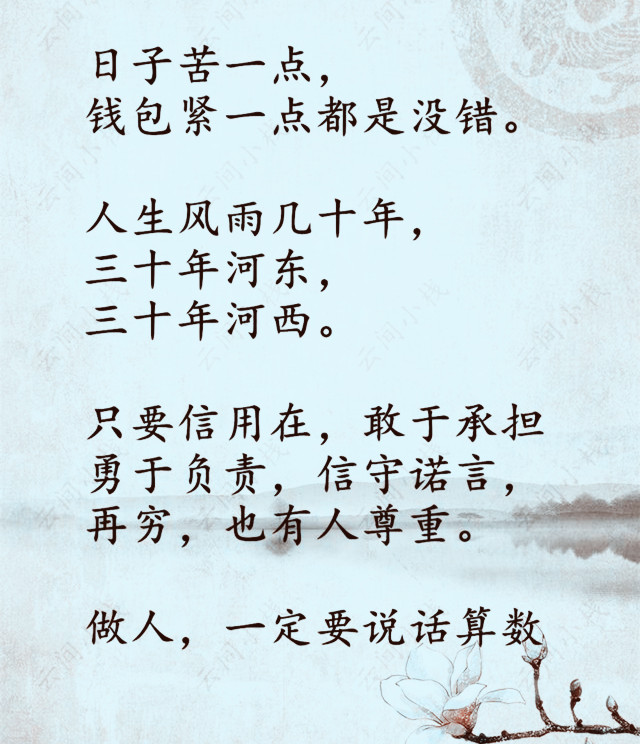 日子苦一点，
钱包紧一点都是没错。
人生风雨几十年，
三十年河东，
三十年河西。
只要信用在，敢于承担
勇于负责，信守诺言，
再穷，也有人尊重。
做人，一定要说话算数
云间小栈